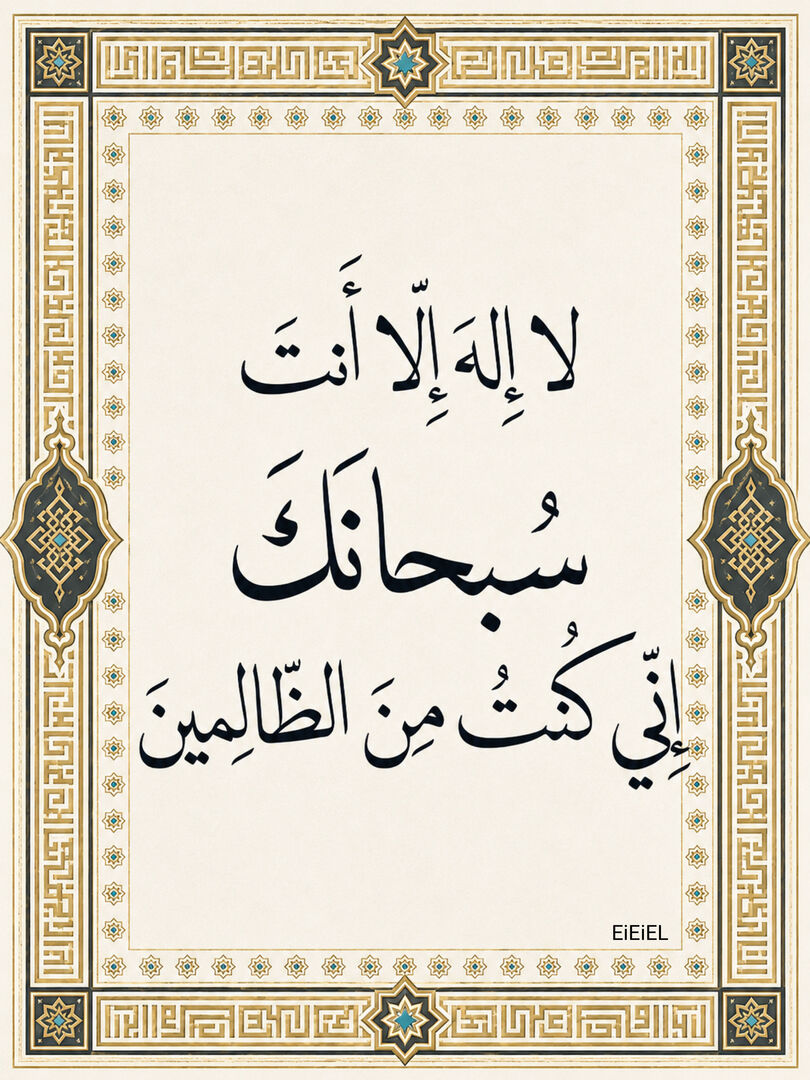 لا إِلهَ إِلّا أَنتَ
سُبحانَكَ
إِنّي كُنتُ مِنَ الظّالِمينَ
EiEiEL